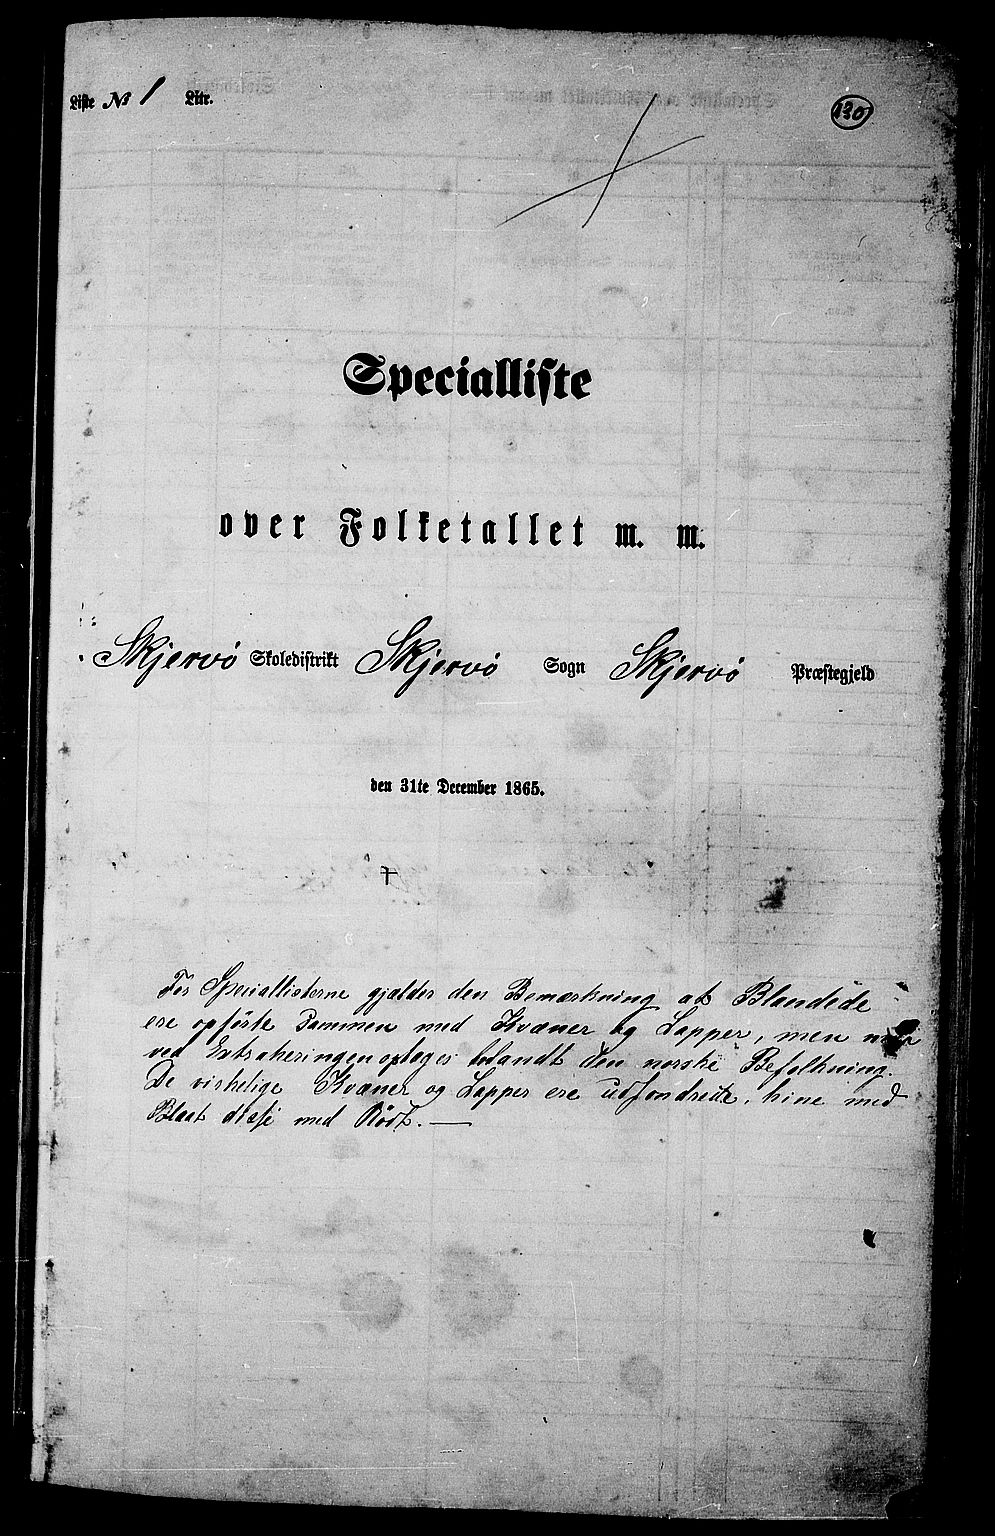 Liste No 1 Litr.
130
Specialliste
over Folketallet m. m.
Skjervö Skoledistrikt Skjervö Sogn Skjervö Præstegjeld
den 31te December 1865.
For Speciallisterne gjælder den Bemærkning at Blandede
ere opförte sammen med Kvæner og Lapper, men maa
ved Extraheringen optages blandt den norske Befolkning.
De virkelige Kvæner og Lapper ere udsondrede, hine med
Blaat disse med Rödt. —